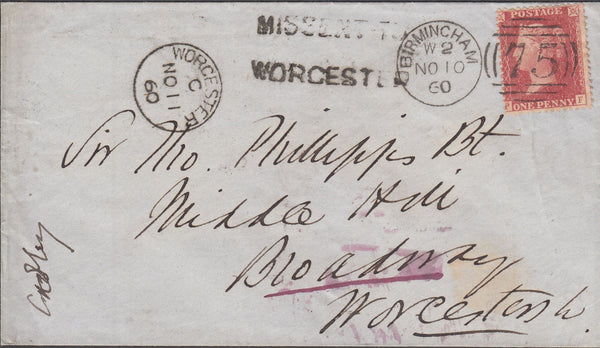 MISSENT TO
WORCESTER
WORCESTER
C
NO 11
60
BIRMINGHAM
W2
NO 10
60
75
POSTAGE
ONE PENNY
F
Sir Tho. Phillipps Bt.
Middle Hill
Broadway
Worcestersh